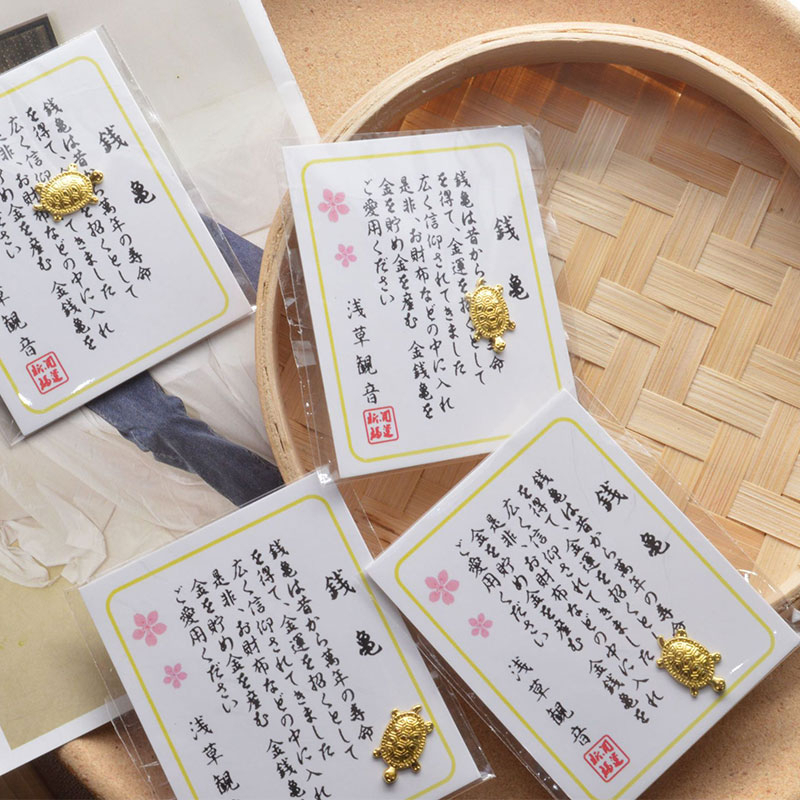 銭亀
銭亀は昔 萬年の寿命
を得て、金運を招くとして
広く信仰 てきました
お財布などの中に入れ
貯め金を産む 金銭亀を
ください
草観音
銭亀
銭亀は昔から 命
を得て、金運を くとして
広く信仰されてきました
是非、お財布などの中に入れ
金を貯め金を産む 金銭亀を
ご愛用ください
浅草観音
銭亀
銭亀は昔から萬年の寿命
を得て、金運を招くとして
広く信仰されてきました
是非、お財布などの中に入れ
金を貯め金を産む 金銭亀
ご愛用ください
浅草観音
銭亀
銭亀は昔から萬年の寿命
を得て、金運を招くとして
広く信仰されてきました
是非、お財布などの中に入れ
金を貯め金を産む 金銭亀を
ご愛用ください
浅草観音